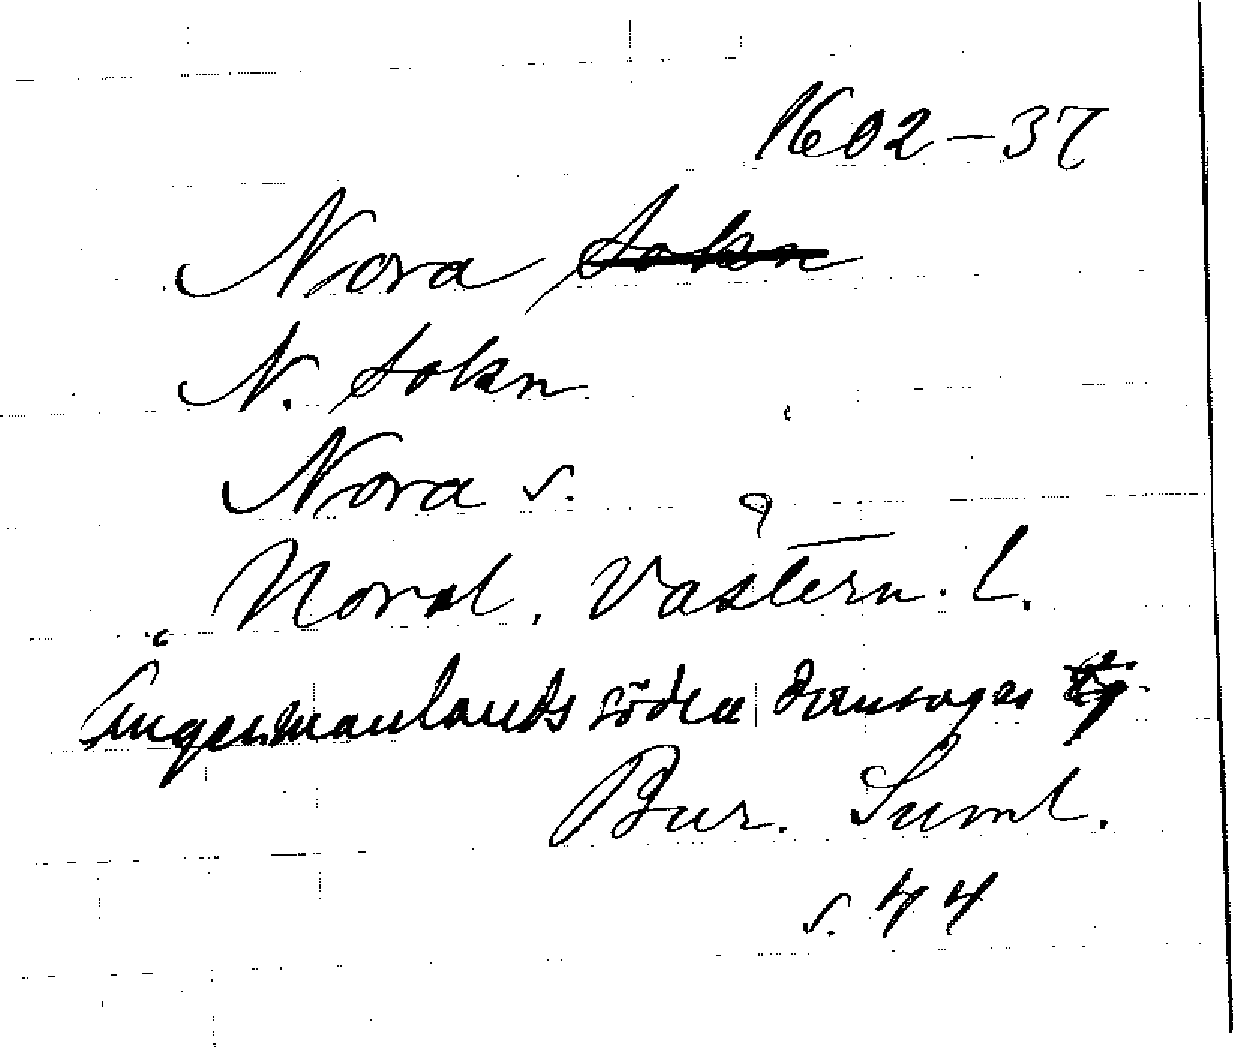 1602-37
Nora Sokn
N. Sokn
Nora s.
Noral. Västern. l.
Ångermanlands södra domsagas
Bur. Suml.
s. 44